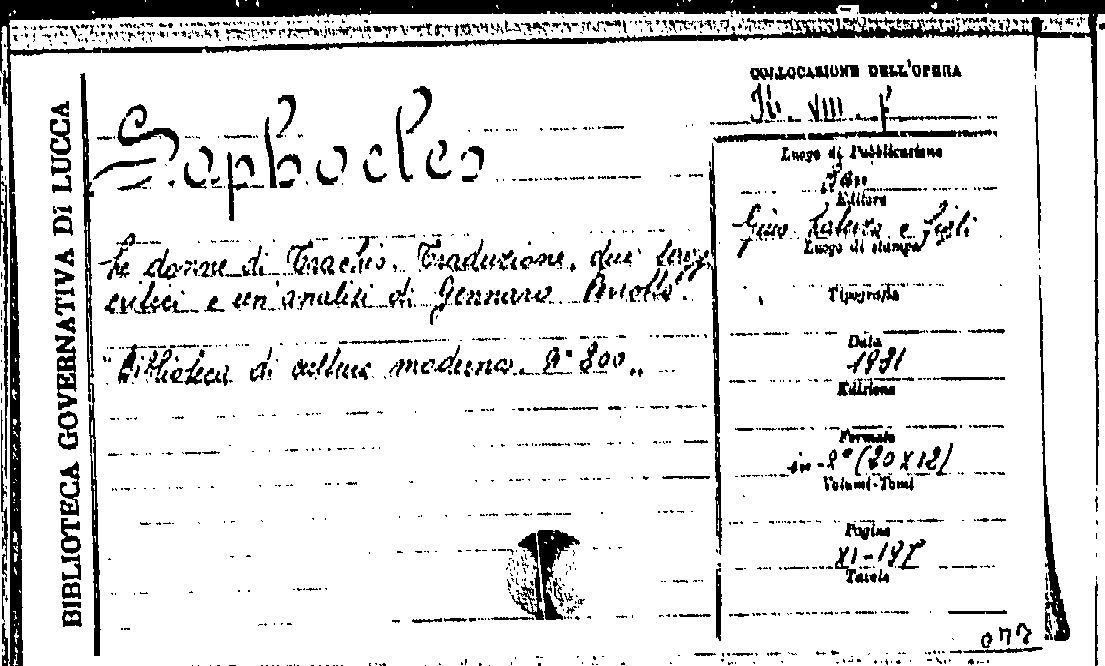 BIBLIOTECA GOVERNATIVA DI LUCCA
COLLOCAZIONE DELL'OPERA
VIII. F
Sophocles
Le donne di Trachis. Traduzione, due
critici e un'analisi di Gennaro
"Biblioteca di cultura moderna. N° 200"
Luogo di Pubblicazione
Bari
Editore
Gius. Laterza e Figli
Luogo di stampa
Tipografia
Data
1931
Edizione
Formato
in-8° (20x12)
Volumi-Tomi
Pagine
XI-
Tavole